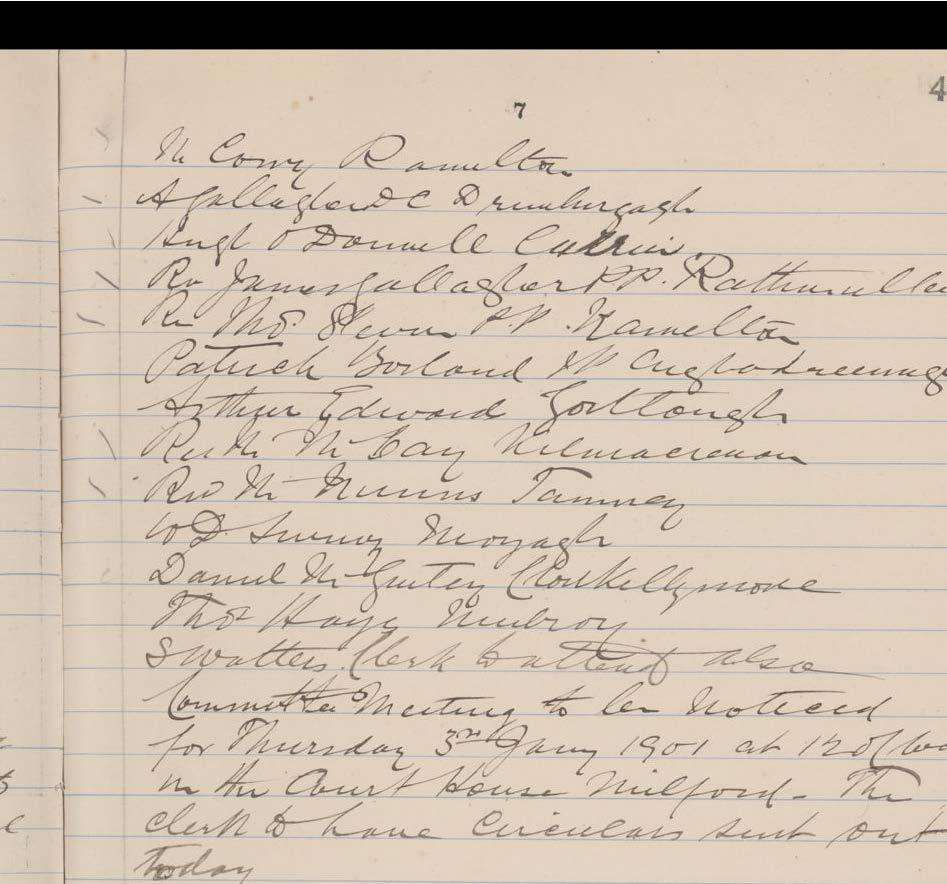 7
4
M Corry Ramelton
A Gallagher D C Drumhergagh
Hugh O Donnell
Rev James Gallagher P.P. Rathmullen
Rev Thos. Slevin P.P. Ramelton
Patrick Borland
Arthur Edward Gortlough
Rev M McCay Kilmacrenan
Rev M Tamney
W D Sweeny Moyagh
Daniel McGinley Clonkillymore
Thos Hay Mulroy
S Watters Clerk to attend also
Committee Meeting to be noticed
for Thursday 3rd Jany 1901 at 12 o/
in the Court House Milford - The
Clerk to have circulars sent out
today